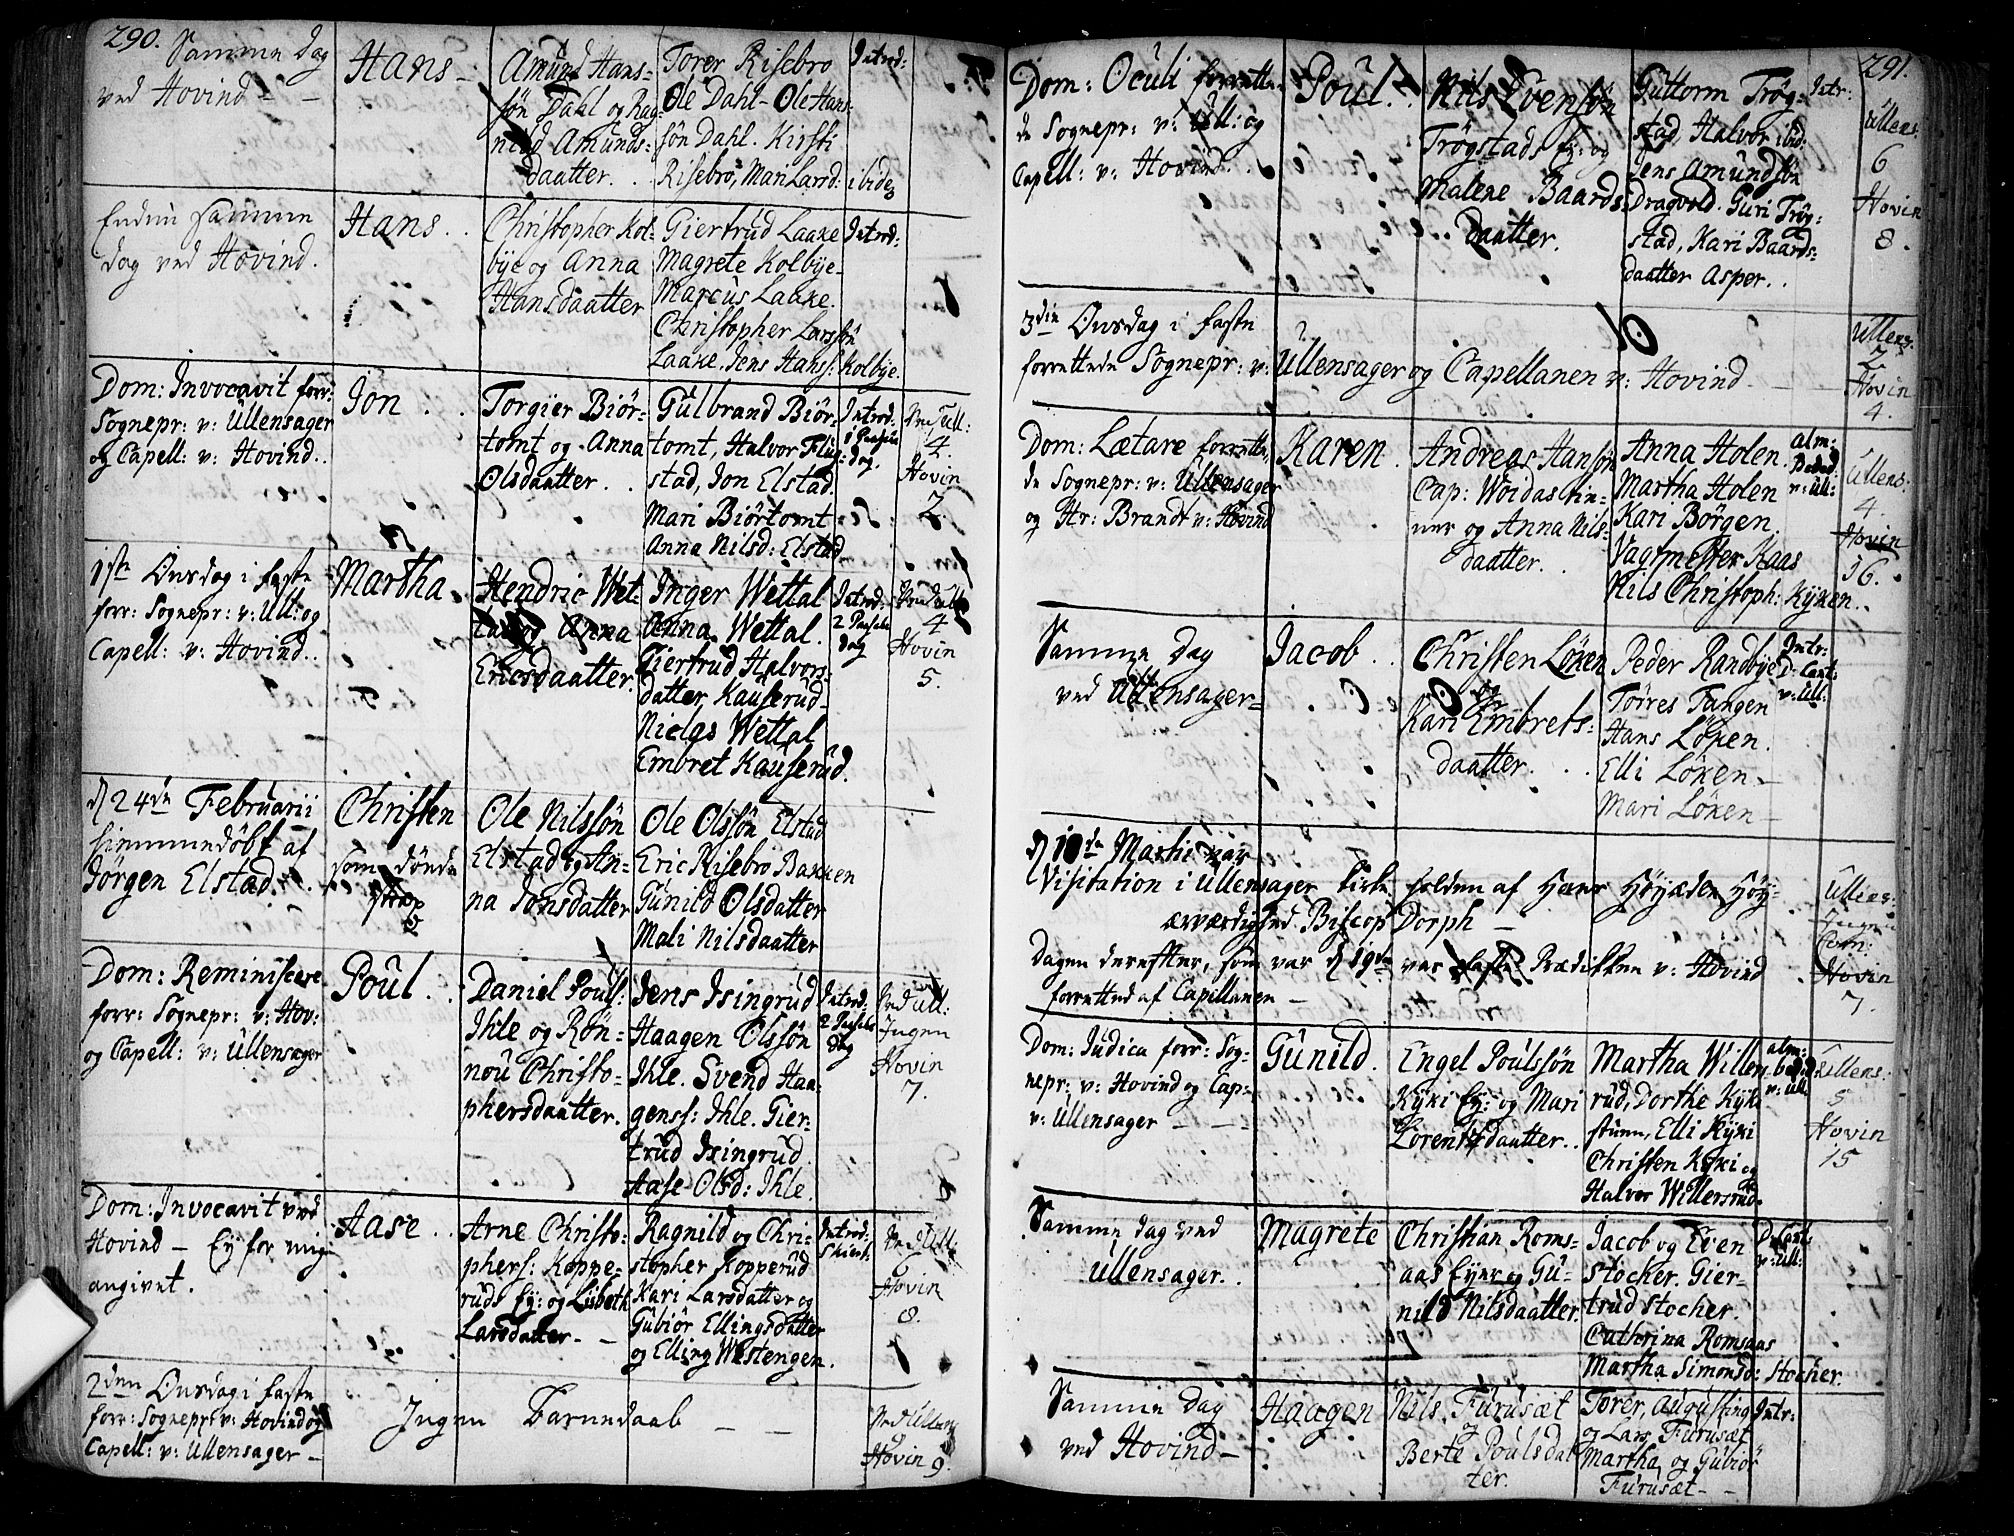 290.
Samme Dag
ved Hovind -
Hans -
Amund Hans-
søn Dahl og Rag-
nild Amunds-
daatter.
Torer Risebro
Ole Dahl - Ole Hans-
søn Dahl. Kirsti
Risebro, Mari Larsd: ibidē
Introd:
Endnu samme
dag ved Hovind.
Hans
Christopher Kol-
bye og Anna
Hansdaatter
Giertrud Laake
Magrete Kolbye
Marcus Laake.
Christopher Larssøn
Laake. Jens Hanss: Kolbye.
Introd:
Dom: Invocavit forr:
Sognepr: v: Ullensager
og Capell: v: Hovind.
Jon
Torgier Biør-
tomt og Anna
Olsdaatter
Gulbrand Biør-
tomt, Halvor Flug-
stad, Jon Elstad.
Mari Biørtomt
Anna Nilsd: Elstad
Introd:
1 Paaske
dag.
Ved Ull:
4.
Hovin
2.
1ste Onsdag i faste
forr: Sognepr: v: Ull: og
Capell: v: Hovind.
Martha
Hendric Wet
tal og Anna
Ericsdaatter.
Inger Wettal
Anna Wettal.
Giertrud Halvors-
datter Kauserud
Niclas Wettal
Embret Kauserud.
Introd:
2 Paaske
dag
Ved Ull:
4
Hovin
5.
d 24de Februarii
hiemmedøbt af
Jørgen Elstad.
Christen
som døde
strax
Ole Nilssøn
Elstad og An-
na Jonsdatter
Ole Olssøn Elstad
Eric Risebro Bakken
Gunild Olsdatter
Mali Nilsdaatter
Dom: Reminiscere
forr: Sognepr: v: Hov:
og Capell: v: Ullensager
Poul
Daniel Pouls:
Ihle og Røn-
nou Christo-
phersdaatter.
Jens Isingrud
Haagen Olssøn
Ihle. Svend Haa-
genss: Ihle. Gier-
trud Isingrud
Aase Olsd: Ihle.
Introd.
2 Paaske
dag
Ved Ull:
Ingen
Hovin
7.
Dom: Invocavit ved
Hovind - Ey for mig
angivet.
Aase
Arne Christo-
phers: Koppe-
ruds Ey: og Lisbeth
Larsdatter -
Ragnild og Chri-
stopher Kopperud
Kari Larsdatter og
Gubiør Ellingsdatter
og Elling Westengen.
Introd:
Ved Ull:
6
Hovin
8.
2den Onsdag i faste
forr: Sognepr: v: Hovind og
Capell: v: Ullensager -
Ingen Barnedaab
Ved Ullens
Hovin 9.
291.
Dom: Oculi forrette-
de Sognepr: v: Ull: og
Capell: v: Hovind.
Poul
Nils Evensøn
Trøgstads Ey: og
Malene Baards-
daatter.
Guttorm Trøg-
stad Halvor ibid:
Jens Amundsøn
Dragvold. Guri Trøg-
stad, Kari Baards-
daatter Asper.
Intr:
Ullens:
6
Hovin
8.
3die Onsdag i faste
forrettede Sognepr: v: Ullensager og Capellanen v: Hovind
Ullens.
7
Hovin
4.
Dom: Lætare forrette-
de Sognepr: v: Ullensager
og Hr: Brandt v: Hovind
Karen
Andreas Hansøn
Cap: Woidas rin-
ner og Anna Nils-
daatter.
Anna Holen
Martha Holen
Kari Børgen
Vagtmester Kaas
Nils Christoph: Kyken.
Ullens:
4.
Hovin
16.
Samme Dag
ved Ullensager -
Jacob
Christen Løken
og
Kari Embrets-
daatter.
Peder Randbye
Tørres Tangen
Hans Løken.
Elli Løken -
Mari Løken -
Intr:
v: Ull:
d 18de Martii var
Visitation i Ullensager Kirke holden af Herr Høyædle Høy-
ærværdighed Biscop Dorph -
Dagen derefter, som var d 19de var Faste Prædikken v: Hovind
forretted af Capellanen -
Ullens:
Ingen
Com:
Hovin
7.
Dom: Iudica forr: Sog-
nepr: v: Hovind og Cap:
v: Ullensager - -
Gunild.
Engel Poulssøn
Kyki Ey: og Mari
Lorentsdaatter.
Martha Willers
rud, Dorthe Kyki
stuen, Elli Kyki
Christen Kyki og
Halvor Willersrud.
Ullens:
5
Hovin
15
Samme dag ved
Ullensager.
Magrete
Christian Roms-
aas Eyer og Gu-
nild Nilsdaatter.
Jacob og Even
Stocher. Gier-
trud Stocher
Cathrina Romsaas
Martha Simonsd: Stocher.
v: Ull:
Samme Dag
ved Hovind -
Haagen
Nils Furusæt
og
Berte Poulsdat
ter.
Torer, Augusting
og Lars Furusæt
Martha og Gubiør
Furusæt -
Intr: